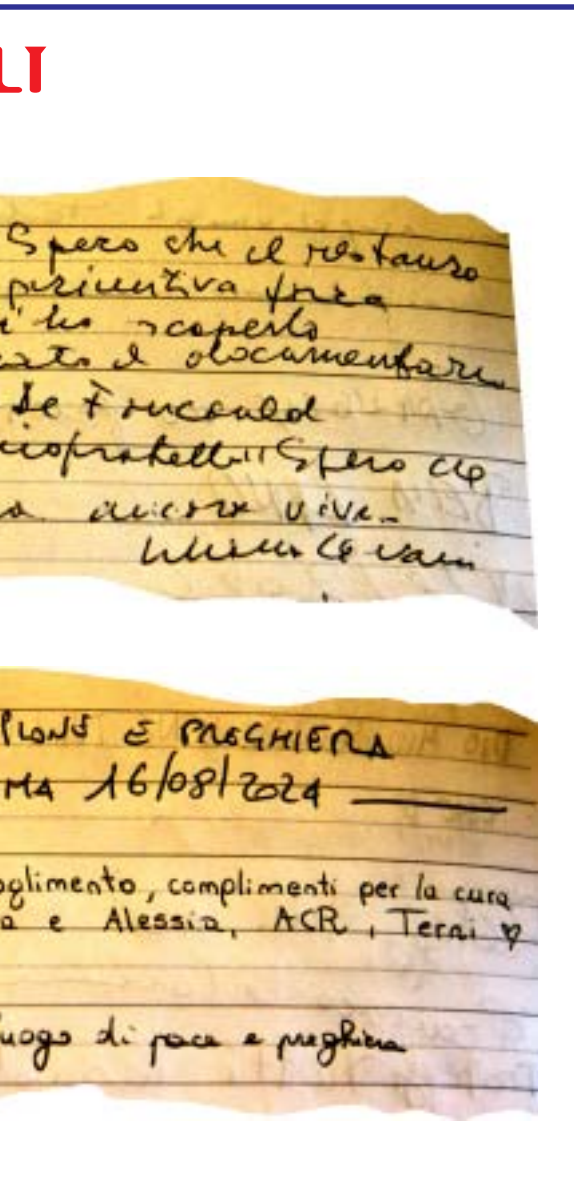 LI
Spero che il restauro
primitiva forza
i ho scoperto
il documentari
de Foucauld
Spero che
ancora viva.
E PREGHIERA
MA 16/08/2024
oglimento, complimenti per la cura
a e Alessia, ACR, Terni ♡
luogo di pace e preghiera